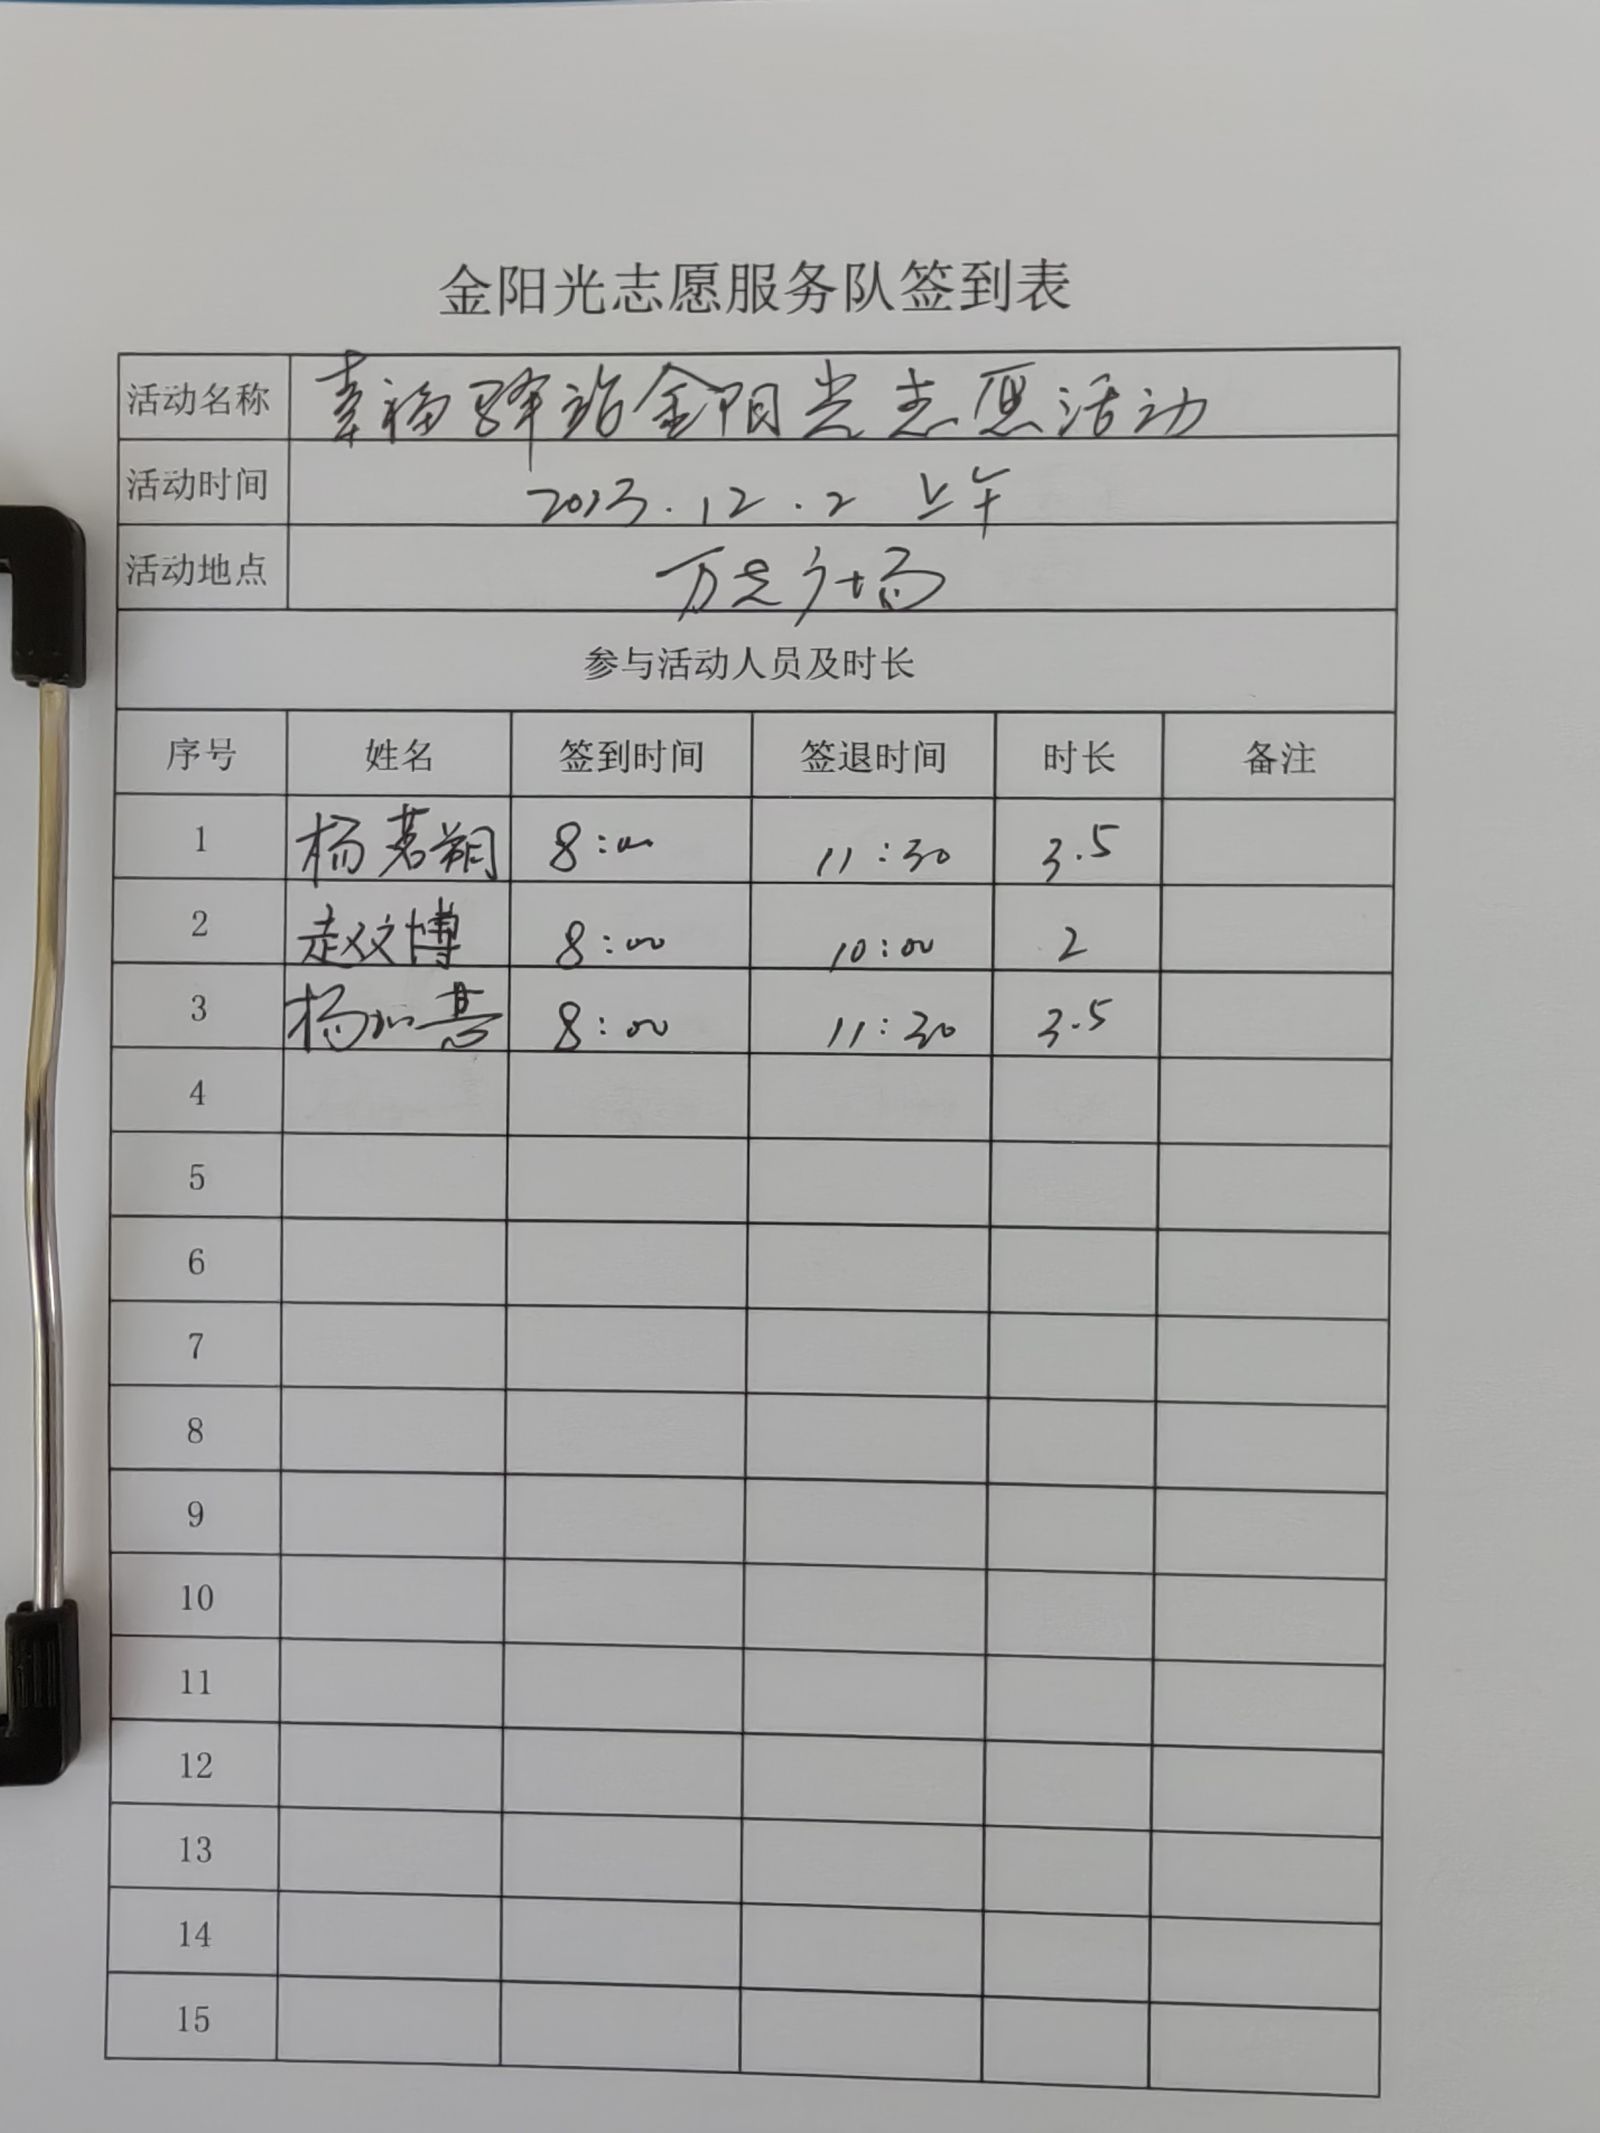 金阳光志愿服务队签到表
活动名称 幸福驿站金阳光志愿活动
活动时间 2023.12.2 上午
活动地点 万达广场
参与活动人员及时长
序号 姓名 签到时间 签退时间 时长 备注
1 杨茗朔 8:00 11:30 3.5
2 赵文博 8:00 10:00 2
3 杨 8:00 11:30 3.5
4
5
6
7
8
9
10
11
12
13
14
15